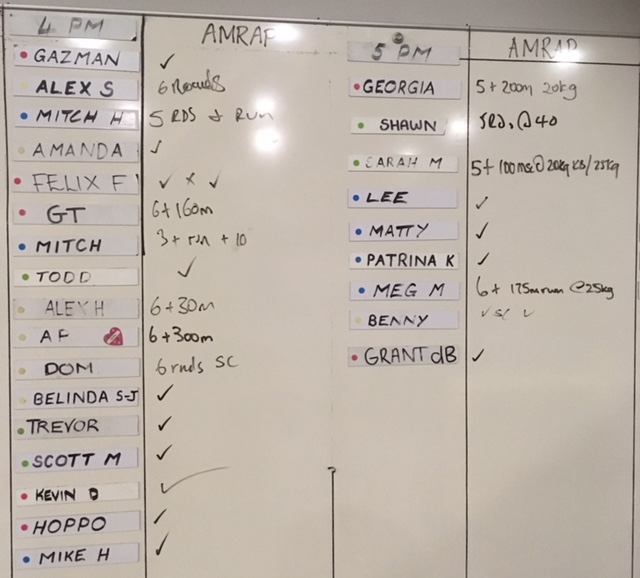 4 PM AMRAP
GAZMAN ✓
ALEX S 6 Rounds
MITCH H 5 RDS + RUN
AMANDA ✓
FELIX F ✓ x ✓
GT 6+160m
MITCH 3 + run + 10
TODD ✓
ALEX H 6+30m
AF 6+300m
DOM 6 rnds SC
BELINDA S-J ✓
TREVOR ✓
SCOTT M ✓
KEVIN D ✓
HOPPO ✓
MIKE H ✓
5 PM AMRAP
GEORGIA 5+200m 20kg
SHAWN 5RD, @40
SARAH M 5+100m @20kg KB/25kg
LEE ✓
MATTY ✓
PATRINA K ✓
MEG M 6+ 175m run @25kg
BENNY ✓ SC ✓
GRANT dB ✓